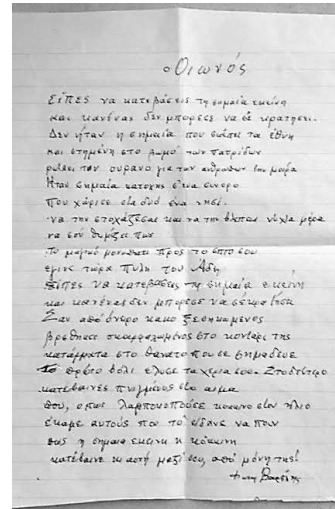 Οιωνός
Είπες να κατεβάσεις τη σημαία εκείνη
και κανένας δεν μπόρεσε να σε κρατήσει.
Δεν ήταν η σημαία που σκέπει τα έθνη
και στημένη στο βωμό των πατρίδων
ρωτάει τον ουρανό για των ανθρώπων την μοίρα
Ήταν σημαία κατοχής ένα σύνορο
που χώριζε στα δυό ένα νησί.
να την στοχάζεσαι και να την βλέπεις νύχτα μέρα
να σου θυμίζει πως
Το μαγικό μονοπάτι προς το σπίτι σου
έγινε τώρα πύλη του Άδη.
Είπες να κατεβάσεις τη σημαία εκείνη
και κανένας δεν μπόρεσε να σε
Σαν από όνειρο κακό ξεσηκωμένος
βρέθηκες σκαρφαλωμένος στο κοντάρι της
κατάματα στο θάνατο που σε σημάδευε
Το πρώτο βόλι έλυσε τα χέρια σου. Στο δεύτερο
κατέβαινες πνιγμένος στο αίμα
που, όπως λαμποκοπούσε κόκκινο στον ήλιο
έκαμε αυτούς που το είδανε να πουν
πως η σημαία εκείνη η κόκκινη
κατέβαινε κι αυτή μαζί σου, από μόνη της!